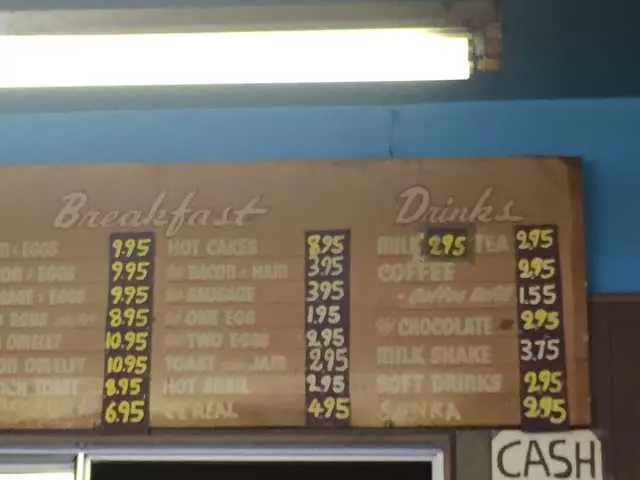 Breakfast
EGGS 9.95
EGGS 9.95
EGGS 9.95
EGGS 8.95
OMELET 10.95
OMELET 10.95
TOAST 8.95
6.95
HOT CAKES 8.95
BACON HAM 3.95
SAUSAGE 3.95
ONE EGG 1.95
TWO EGGS 2.95
TOAST JAM 2.95
HOT SNAIL 2.95
CEREAL 4.95
Drinks
MILK 2.95 TEA 2.95
COFFEE 2.95
Coffee 1.55
CHOCOLATE 2.95
MILK SHAKE 3.75
SOFT DRINKS 2.95
SANKA 2.95
CASH